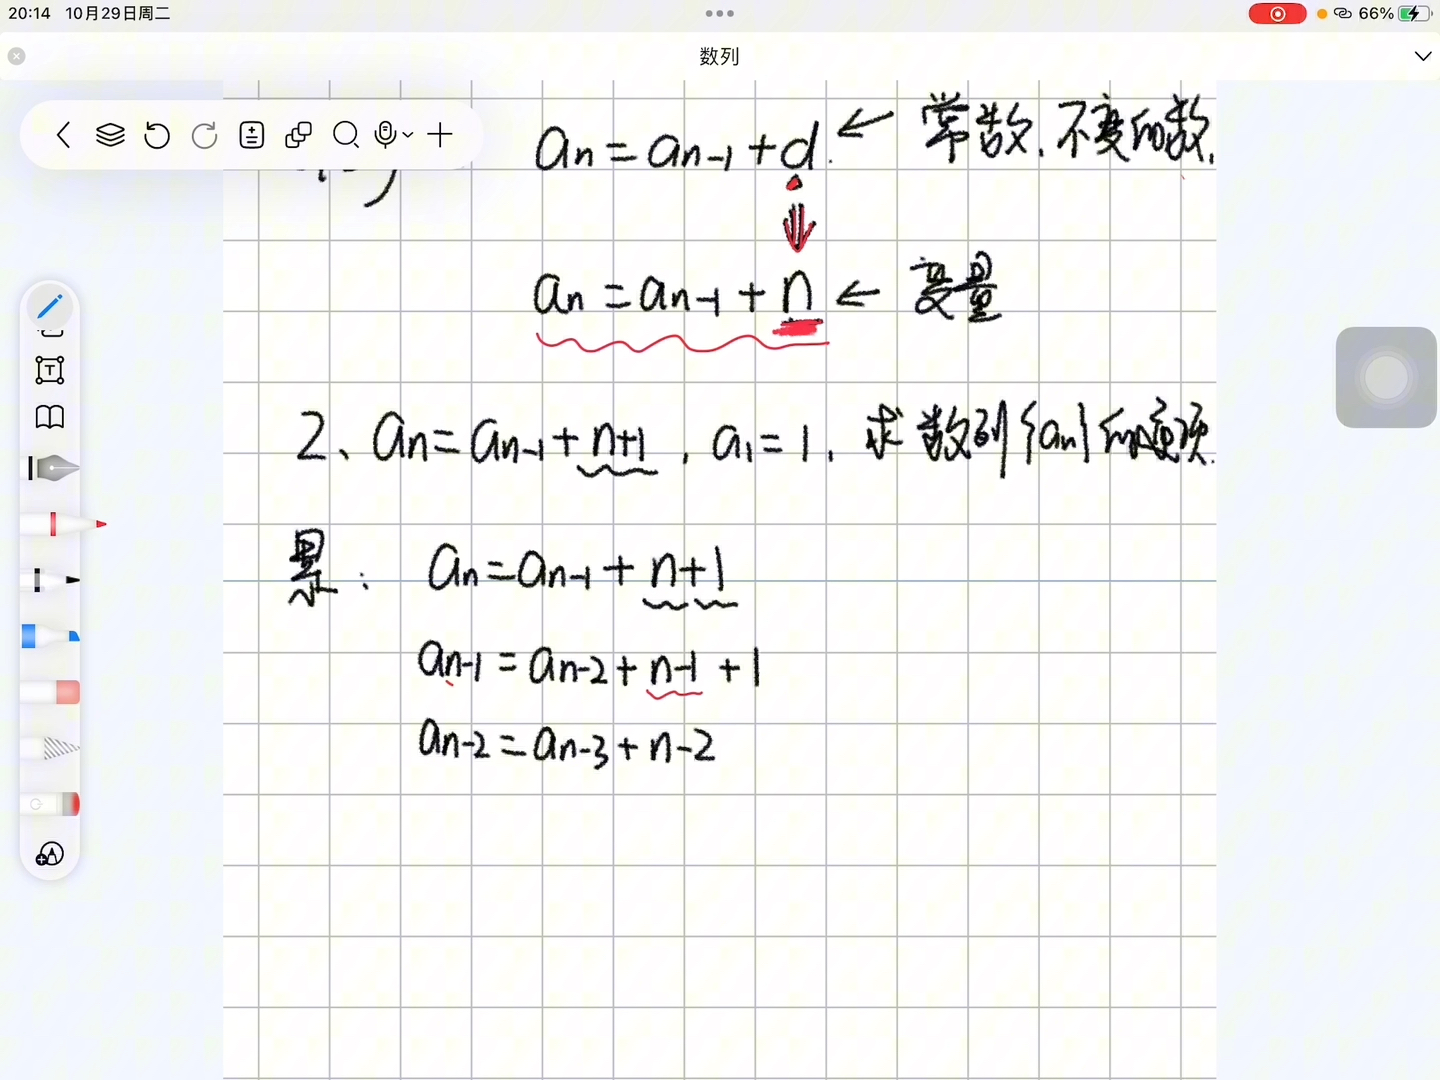 20:14 10月29日周二
66%
数列
an=an-1+d. ← 常数.不变的数.
an=an-1+n ← 变量
2、an=an-1+n+1, a1=1, 求数列{an}的通项.
累: an=an-1+n+1
an-1=an-2+n-1+1
an-2=an-3+n-2